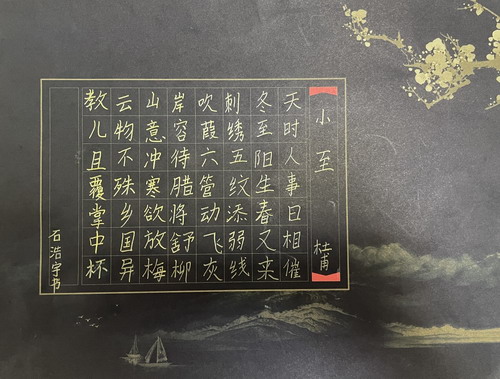 小至 杜甫
天时人事日相催
冬至阳生春又来
刺绣五纹添弱线
吹葭六管动飞灰
岸容待腊将舒柳
山意冲寒欲放梅
云物不殊乡国异
教儿且覆掌中杯
石浩宇书